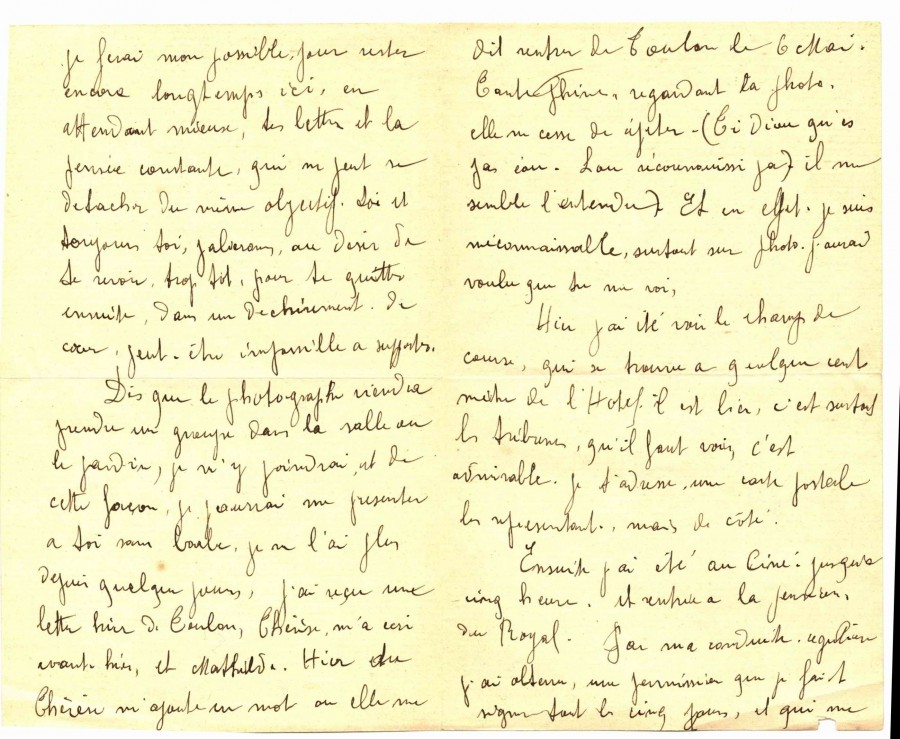 je ferai mon possible, pour rester
encore longtemps ici, en
attendant mieux, tes lettre et la
pensée constante, qui ne peut se
detacher du même objectif. toi et
toujours toi, au desir de
te revoir, trop tôt, pour te quitter
ensuite, dans un dechirement. de
cœur, peut-être impossible a supporter.
Dis que le photographe viendra
prendre un groupe dans la salle ou
le jardin, je m'y joindrai, et de
cette façon, je pourrai me presenter
a toi sans barbe, je ne l'ai plus
depuis quelque jours, j'ai reçu une
lettre hier de Toulon, Thérèse, m'a ecri
avant-hier, et Mathilde. Hier
Thérèse m'ajoute un mot ou elle me
dit rentrer de Toulon le 6 Mai.
Tante Phine, regardant la photo,
elle ne cesse de répéter - (Ti Diou qui es
pas éou. Lou récounouissi pa) il me
semble l'entendre). Et en effet. je suis
méconnaissable, surtout sur photo. j'aurai
voulu que tu me voi,
Hier j'ai été voir le champ de
course, qui se trouve a quelque cent
mètre de l'Hotel. il est bien, c'est surtout
les tribunes, qu'il faut voir, c'est
admirable. je t'adresse, une carte postale
les representant, mais de côté.
Ensuite j'ai été au Ciné. jusqu'a
cinq heure. et rentrée a la pension,
du Royal. Par ma conduite. régulière
j'ai obtenu, une permission que je fait
signer tout les cinq jours, et qui me